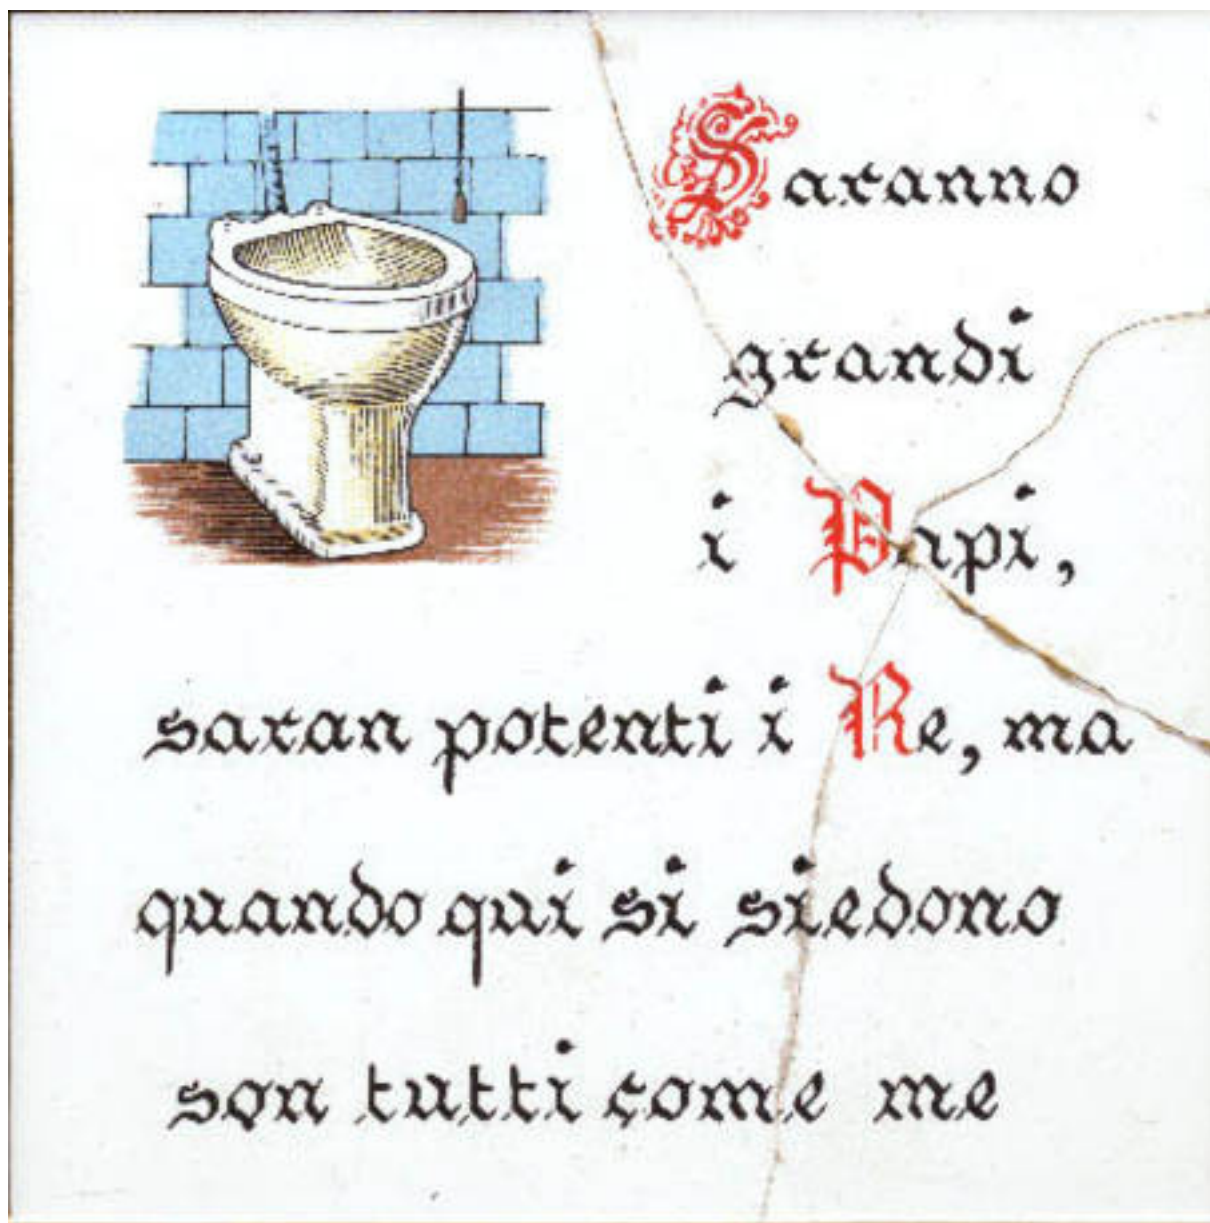 Saranno
grandi
i Papi,
saran potenti i Re, ma
quando qui si siedono
son tutti come me